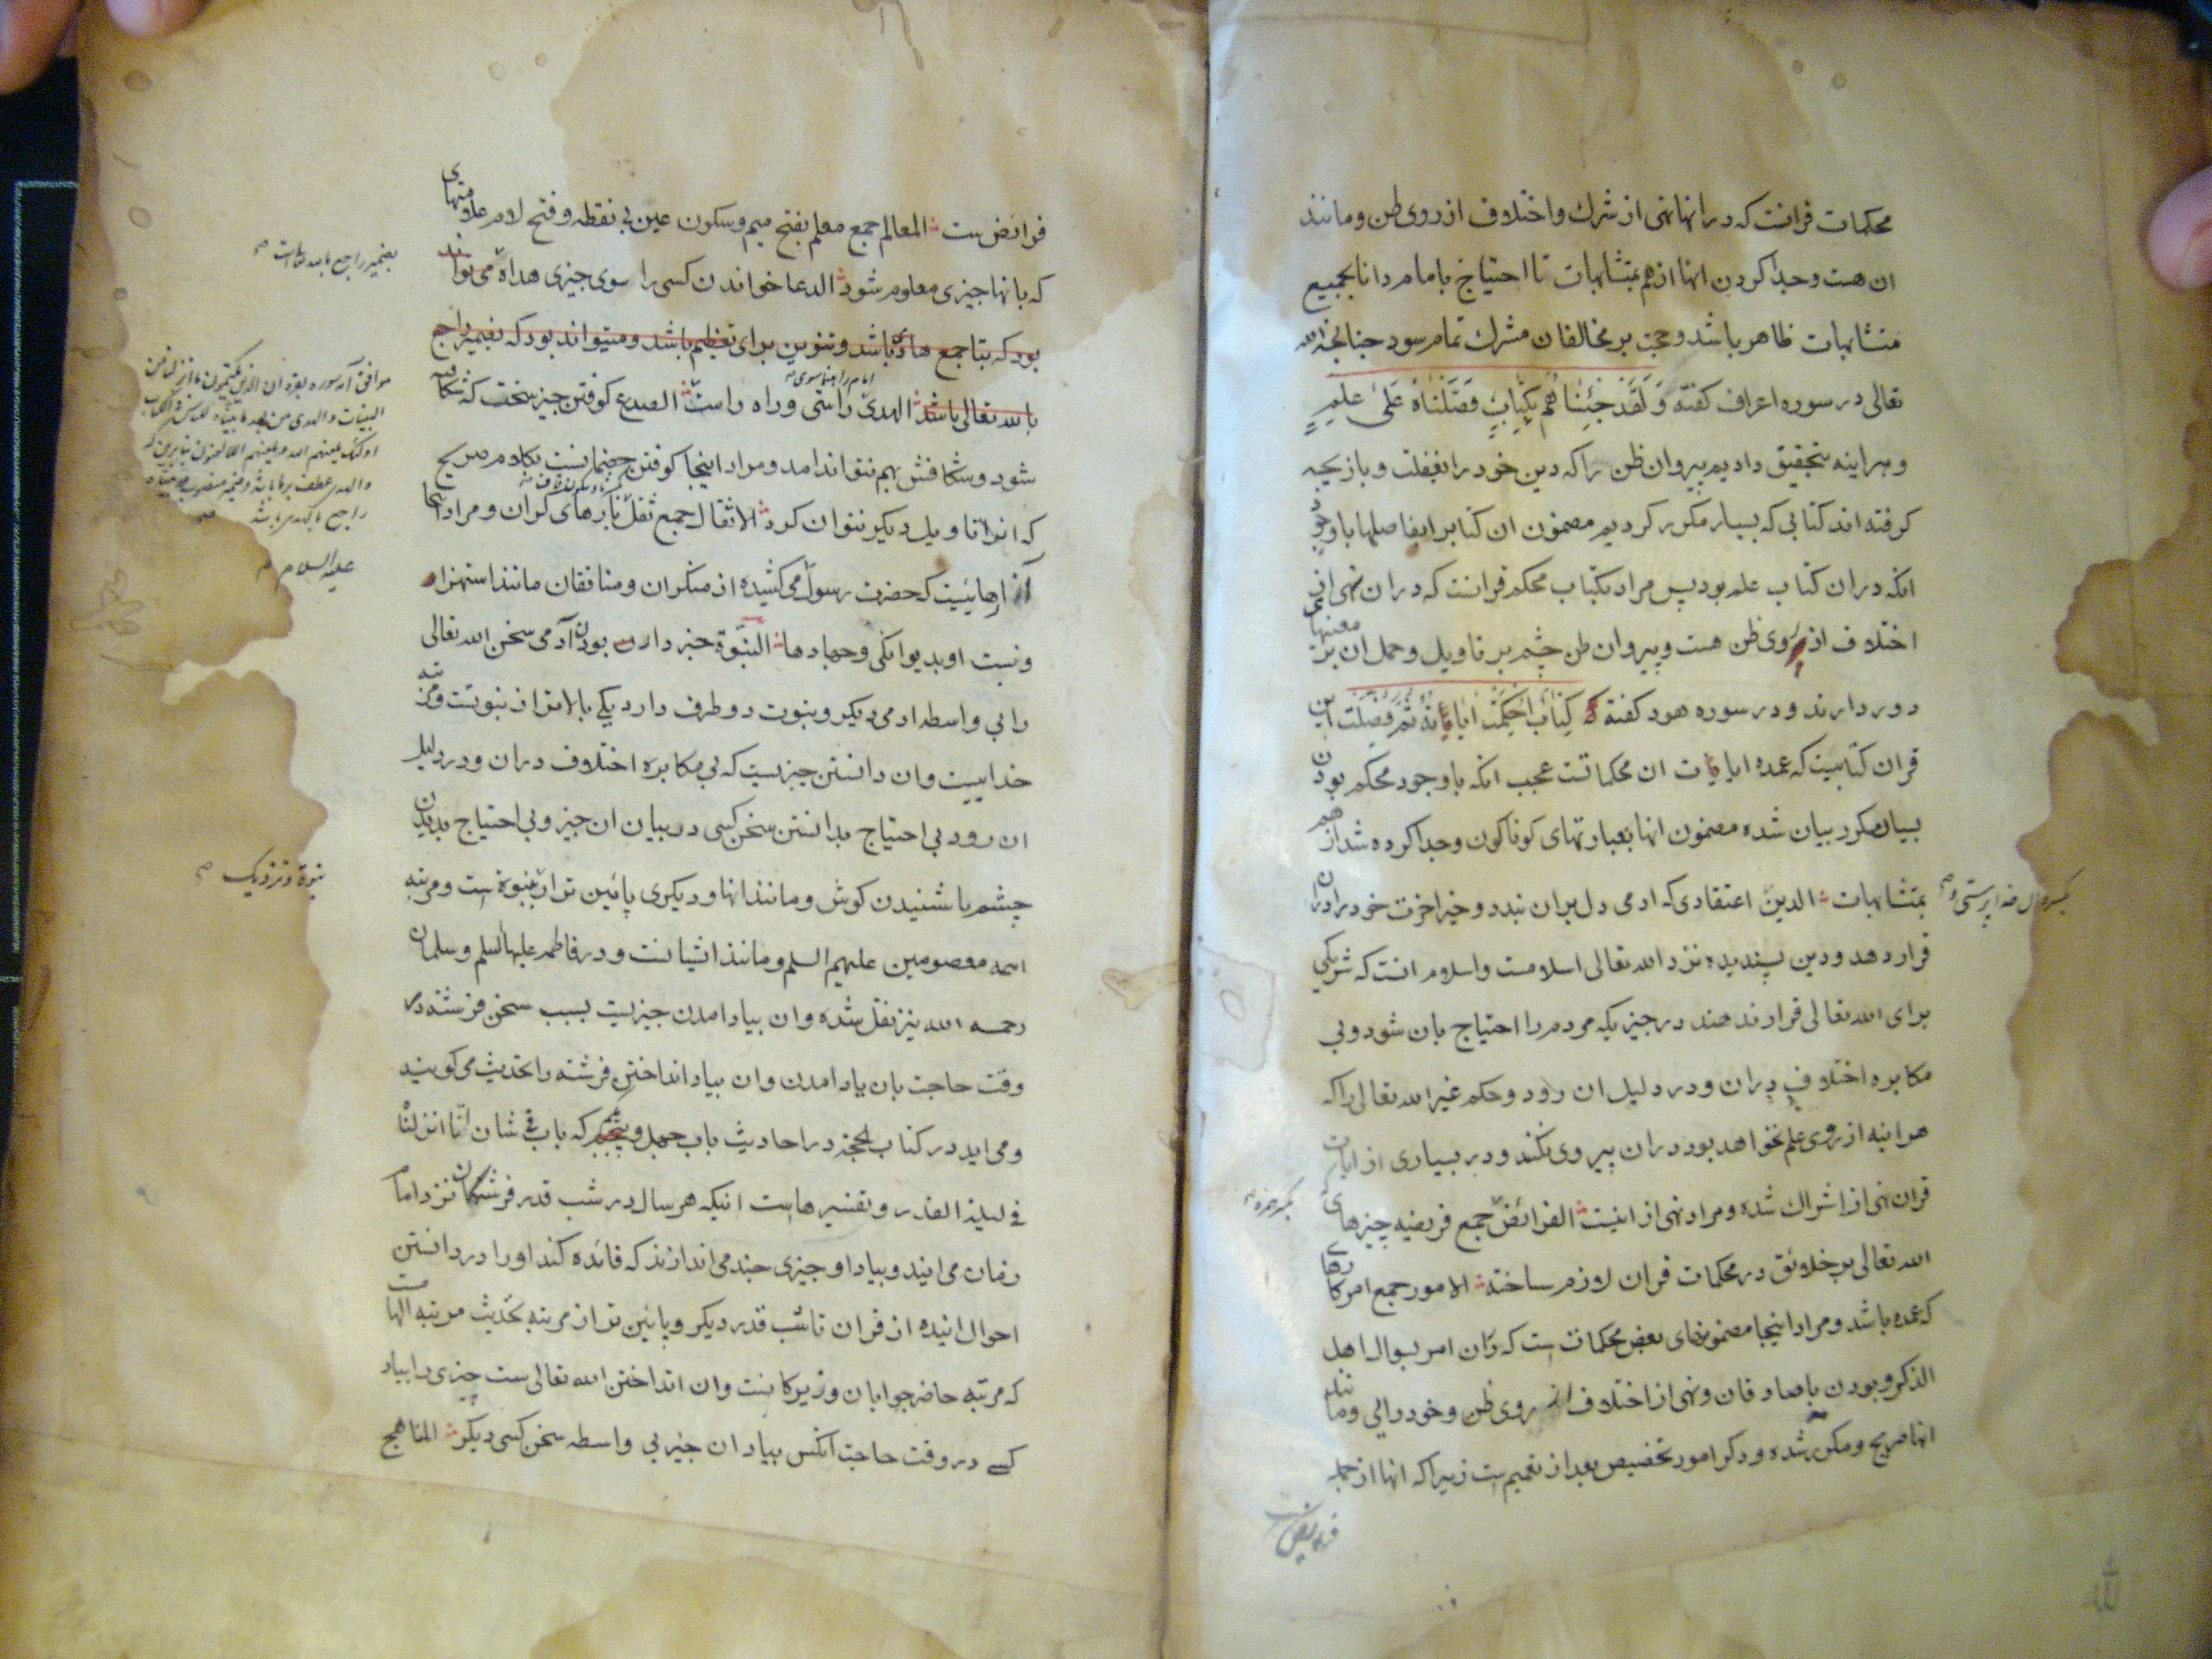 محکمات قرانست که در انها نهی از شرك واختلاف از روی ظن ومانند
ان هست وجدا کردن انها از هم بمتشابهات تا احتیاج بامام دانا بجمیع
متشابهات ظاهر باشد وحجت بر مخالفان مشرك تمام سود جنانچه الله
تعالی در سوره اعراف کفته وَلَقَد جِئنَاهُم بِکِتَابٍ فَصَّلنَاهُ عَلیٰ عِلمٍ
وهراینه بتحقیق دادیم پیروان ظن را که دین خود را بغفلت وبازیچه
کرفته اند کتابی که بسیار مکرر کردیم مضمون ان کتابرا بفاصلها باوجود
انکه دران کتاب علم بود پس مراد بکتاب محکم قرانست که دران نهی از
اختلاف از روی ظن هست وپیروان ظن چشم بر تاویل وحمل ان بر معنیهای
دور دارند ودر سوره هود کفته که کِتَابٌ اُحکِمَت ایاتُهُ ثُمَّ فُصِّلَت این
قران کتابیست که عمده ایات ان محکماتست عجب انکه باوجود محکم بودن
بسیار مکرر بیان شده مضمون انها بعبارتهای کوناکون وجدا کرده شد از هم
بمتشابهات الدین اعتقادی که ادمی دل بران بندد وخیر اخرت خود را دران
قرار دهد ودین پسندیده نزد الله تعالی اسلامست واسلام انست که شریکی
برای الله تعالی قرار ندهند در جیزیکه مردم را احتیاج بان شود وبی
مکابره اختلاف دران ودر دلیل ان رود وحکم غیر الله تعالی را که
هراینه از روی علم نخواهد بود دران پیروی نکنند ودر بسیاری از ایات
قران نهی از اشراك شده ومراد نهی از اینست الفرائض جمع فریضه چیزهای
الله تعالی بر خلائق در محکمات قران لازم ساخته الامور جمع امر کارهای
که عمده باشد ومراد اینجا مضمونهای بعض محکماتست که دران امر بسوال اهل
الذکر وبودن با صادقان ونهی از اختلاف از روی ظن وخود رایی ومانند
انها صریح ومکرر شده وذکر امور تخصیص بعد از تعمیم است زیرا که انها از جمله
فرایض
فرائض ست المعالم جمع معلم بفتح میم وسکون عین بی نقطه وفتح لام علامتهای
که بانها جیزی معلوم شود الدعا خواندن کسی را سوی جیزی هداة می تواند
بود که بتا جمع هاد باشد وتنوین برای تعظیم باشد ومیتواند بود که بضمیر راجع
بالله تعالی باشد الهدی راستی وراه راست الصدع کوفتن جیز سخت که شکافته
شود وشکافتش بهم نتواند امد ومراد اینجا کوفتن خصمانست بکلام صریح
که انرا تاویل دیکر نتوان کرد الاثقال جمع ثقل بارهای کران ومراد اینجا
ازارهائیست که حضرت رسول می کشیده از منکران ومنافقان مانند استهزاء
ونسبت او بدیوانکی وجهادها النبوّة خبردار بودن آدمی سخن الله تعالی
را بی واسطه ادمی دیکر ونبوت دو طرف دارد یکی بالاتر از نبوتست ومرتبه
خداییست وان دانستن جیزیست که بی مکابره اختلاف دران ودر دلیل
ان رود بی احتیاج بدانستن سخن کسی در بیان ان جیز وبی احتیاج بدیدن
چشم یا شنیدن کوش ومانند انها ودیکری پائین تر از نبوة است ومرتبه
ائمه معصومین علیهم السلم ومانند ایشانست ودر فاطمه علیها السلم وسلمان
رحمه الله نیز نقل شده وان بیاد امدن جیزیست بسبب سخن فرشته در
وقت حاجت بان یاد امدن وان بیاد انداختن فرشته را تحدیث می کویند
ومی اید در کتاب الحجة در احادیث باب چهل ویکم که باب فی شان انّا انزلنٰا
فی لیلة القدر وتفسیرهاست اینکه هر سال در شب قدر فرشتکان نزد امام
زمان می ایند وبیاد او جیزی چند می اندازند که فائده کند او را در دانستن
احوال اینده از قران تا شب قدر دیکر وپائین تر از مرتبه تحدیث مرتبه الهامست
که مرتبه حاضر جوابان وزیرکانست وان انداختن الله تعالی ست چیزی را بیاد
کسی در وقت حاجت انکس بیاد ان جیز بی واسطه سخن کسی دیکر المناهج
بضمیر راجع بالله تعالی است
موافق آیه سوره بقره ان الذین یکتمون ما انزلنا من
البینات والهدی من بعد ما بیناه للناس فی الکتاب
اولئک یلعنهم الله ویلعنهم اللاعنون
راجع باشد
علیه السلام
نبوة ونزدیک